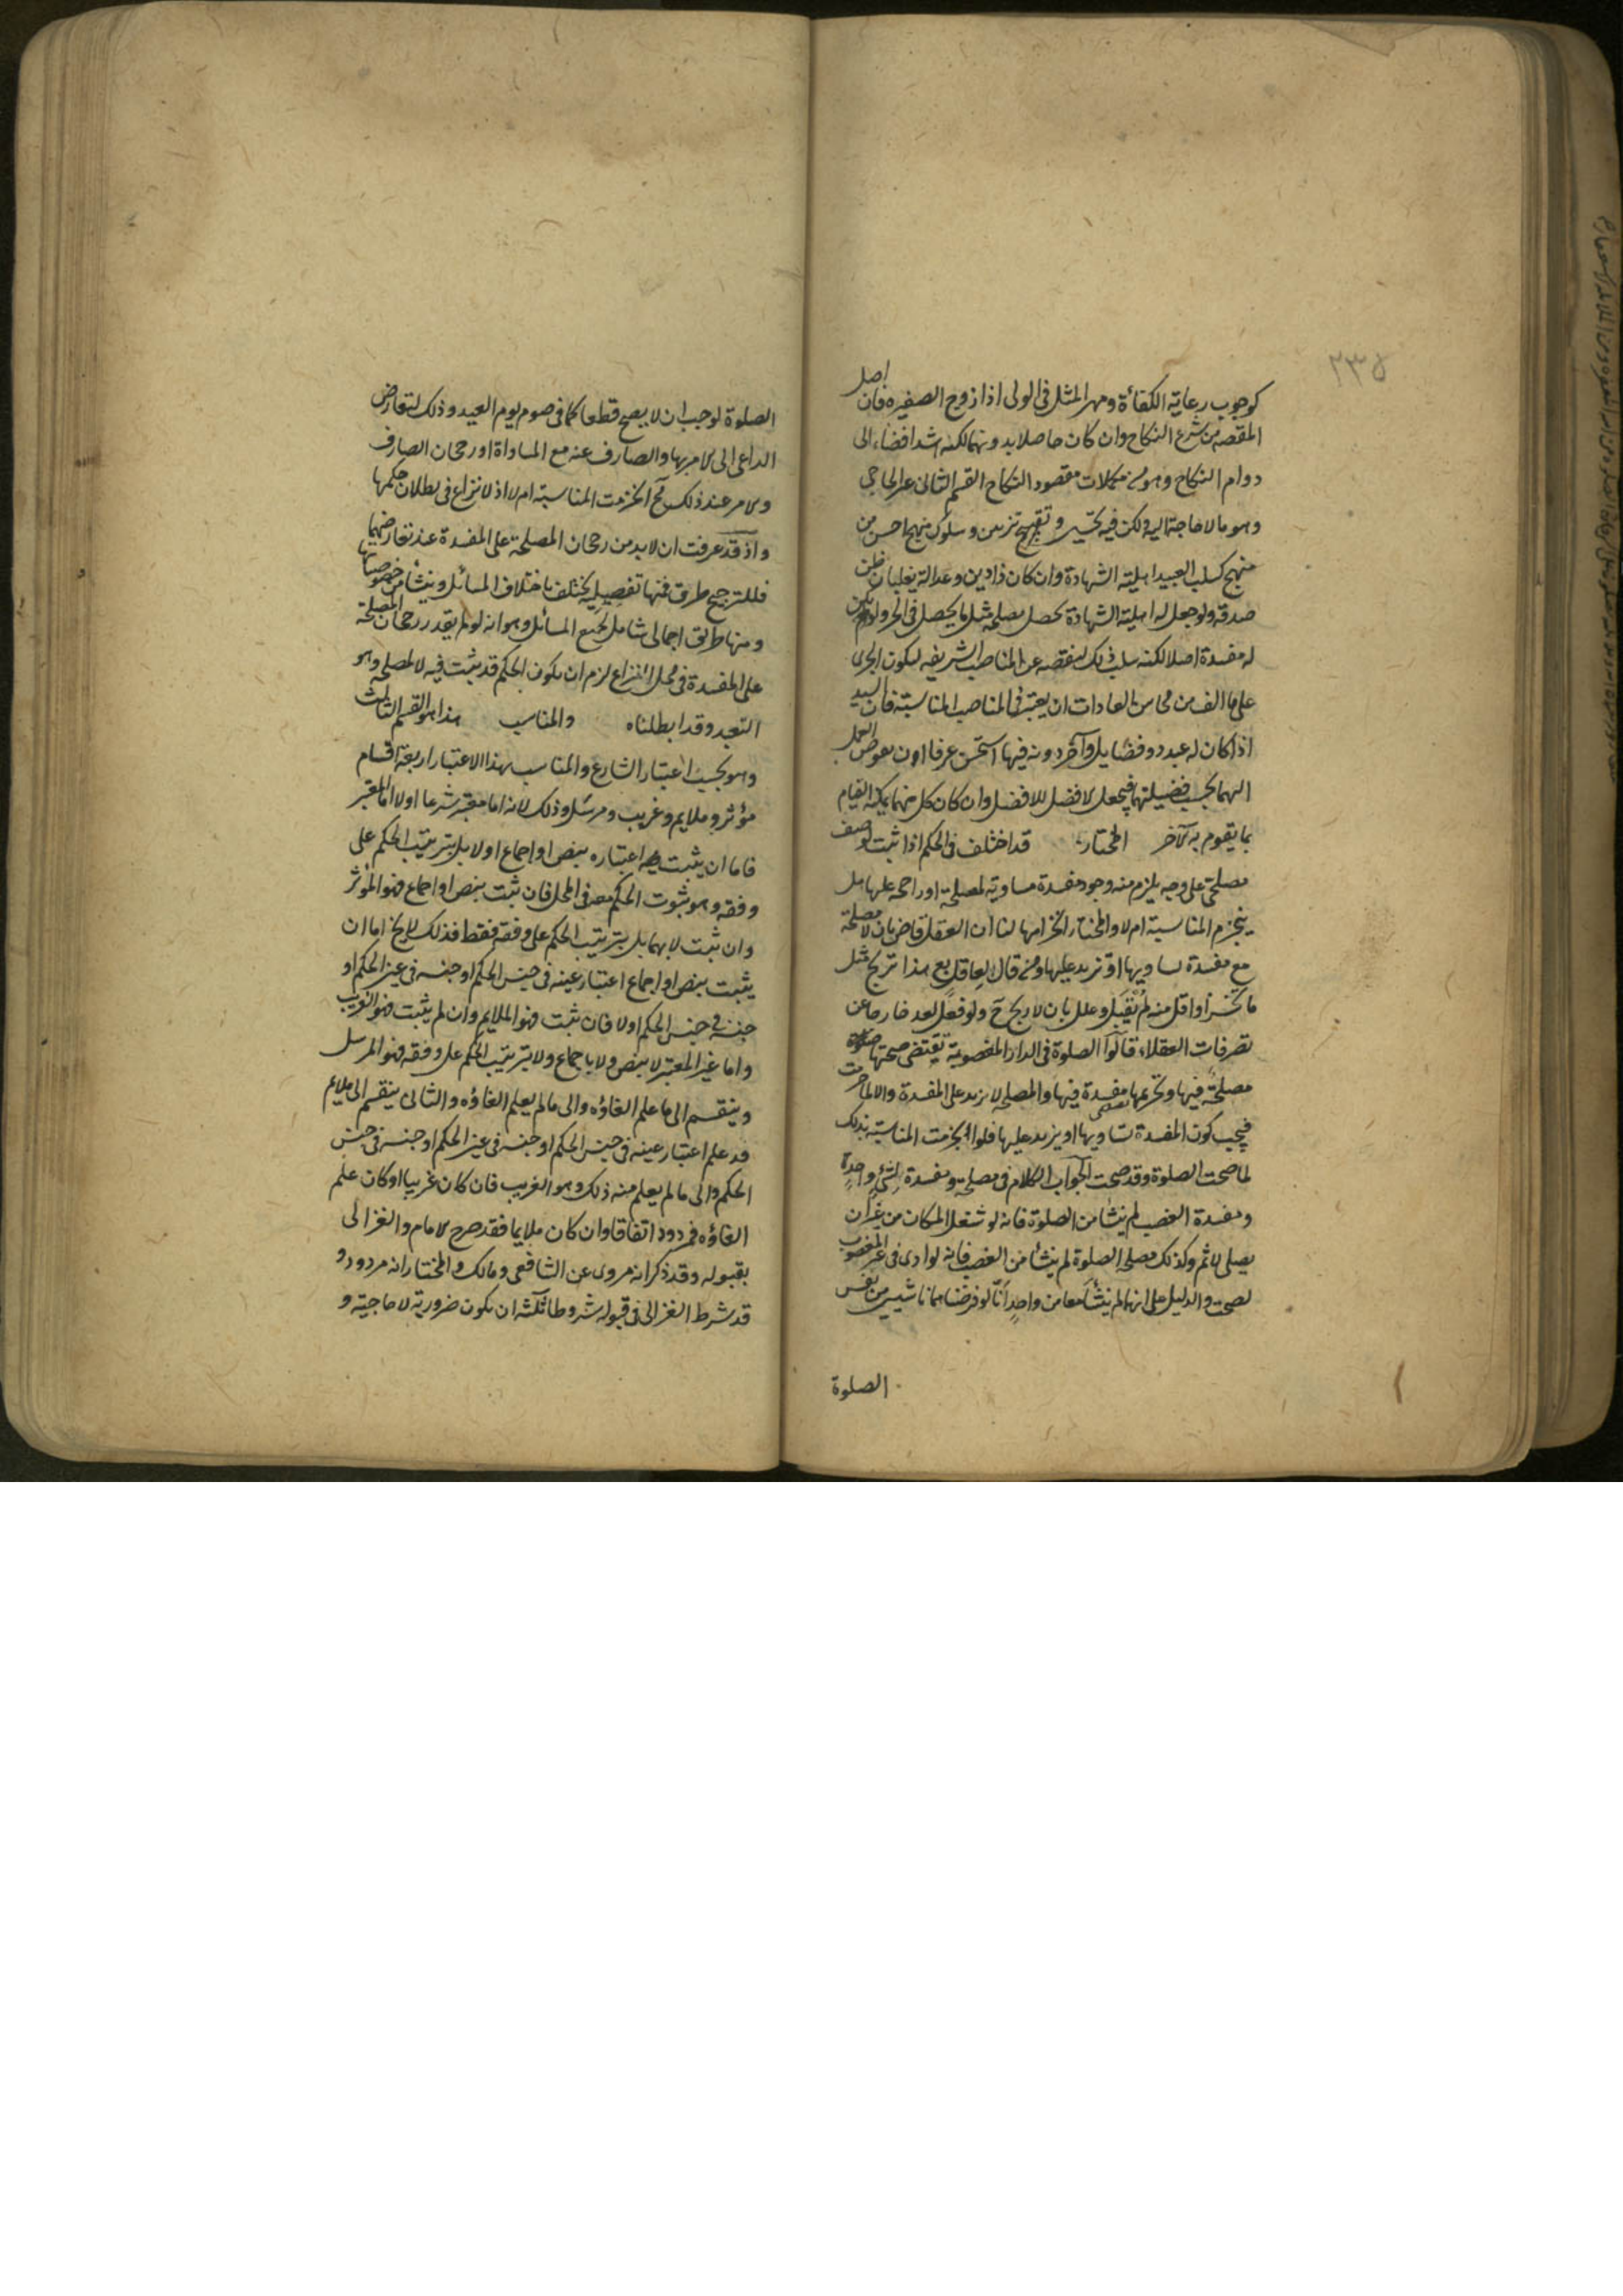 ٢٣٥
كوجوب رعاية الكفاءة ومهر المثل فى الولى اذا زوج الصغيره فان اصل
المقصه من شرع النكاح وان كان حاصلا بدونهما لكنه اشد افضاء الى
دوام النكاح وهو من مكملات مقصود النكاح القسم الثانى غير الحاجى
وهو ما لا حاجة اليه ولكن فيه تحسين وتزيين وسلوك منهج احسن من
منهج كسلب العبيد اهلية الشهادة وان كان ذا دين وعدالة يغلبان ظن
صدقه ولو جعل له اهلية الشهادة لحصل مصلحة مثل ما يحصل فى الحر ولم يكن
له مفسدة اصلا لكنه سلب ذلك لنقصه عن المناصب الشريفه ليكون الجرى
على ما الف من محاسن العادات ان يعتبر فى المناصب المناسبة فان السيد
اذا كان له عبد ذو فضايل وآخر دونه فيها استحسن عرفا ان يفوض العمل
اليهما بحسب فضيلتهما فيجعل الافضل للافضل وان كان كل منهما يمكنه القيام
بما يقوم به الآخر المختار قد اختلف فى الحكم اذا ثبت لوصف
مصلحى على وجه يلزم منه وجود مفسدة مساوية لمصلحته او راجحه عليها هل
ينخرم المناسبة ام لا والمختار انخرامها لنا ان العقل قاض بان لا مصلحة
مع مفسدة تساويها او تزيد عليها ومن قال لعاقل بع هذا تربح مثل
ما تخسر او اقل منه لم يقبل وعلل بان لا ربح ح ولو فعل لعد خارجا عن
تصرفات العقلاء قالوا الصلوة فى الدار المغصوبة تقتضى صحتها
مصلحة فيها وتحريمها مفسدة فيها والمصلحة لا تزيد على المفسدة والا لما حرمت
فيجب كون المفسدة تساويها او يزيد عليها فلو انخرمت المناسبة بذلك
لما صحت الصلوة وقد صحت الجواب الكلام فى مصلحة ومفسدة لشئ واحد
ومفسدة الغصب لم ينشأ من الصلوة فانه لو شغل المكان من غير ان
يصلى لاثم وكذلك مصلحة الصلوة لم ينشأ من الغصب فانه لو ادى فى غير المغصوب
لصحت والدليل على انهما لم ينشأ معا من واحد انا لو فرضناهما ناشيين من نفس
الصلوة
الصلوة لوجب ان لا يصح قطعا كما فى صوم يوم العيد وذلك لتعارض
الداعى الى الامر بها والصارف عنه مع المساواة او رجحان الصارف
والامر عند ذلك مح انخرمت المناسبة ام لا اذ لا نزاع فى بطلان حكمها
واذ قد عرفت ان لا بد من رجحان المصلحة على المفسدة عند تعارضهما
فللترجيح طرق فمنها تفصيلية يختلف باختلاف المسائل وينشأ من خصوصياتها
ومنها طريق اجمالى شامل لجميع المسائل وهو انه لو لم يقدر رجحان المصلحة
على المفسدة فى محل النزاع لزم ان يكون الحكم قد ثبت فيه لا لمصلحة وهو
التعبد وقد ابطلناه والمناسب هذا هو القسم الثالث
وهو بحسب اعتبار الشارع والمناسب بهذا الاعتبار اربعة اقسام
مؤثر وملايم وغريب ومرسل وذلك لانه اما معتبر شرعا اولا اما المعتبر
فاما ان يثبت اعتباره بنص او اجماع اولا بل بترتيب الحكم على
وفقه وهو ثبوت الحكم معه فى المحل فان ثبت بنص او اجماع فهو المؤثر
وان ثبت لا بهما بل بترتيب الحكم على وفقه فقط فذلك لا يخ اما ان
يثبت بنص او اجماع اعتبار عينه فى جنس الحكم او جنسه فى عين الحكم او
جنسه فى جنس الحكم اولا فان ثبت فهو الملايم وان لم يثبت فهو الغريب
واما غير المعتبر لا بنص ولا باجماع ولا بترتيب الحكم على وفقه فهو المرسل
وينقسم الى ما علم الغاؤه والى ما لم يعلم الغاؤه والثانى ينقسم الى ملايم
قد علم اعتبار عينه فى جنس الحكم او جنسه فى عين الحكم او جنسه فى جنس
الحكم والى ما لم يعلم منه ذلك وهو الغريب فان كان غريبا او كان علم
الغاؤه فمردود اتفاقا وان كان ملايما فقد صرح الامام والغزالى
بقبوله وقد ذكر انه مروى عن الشافعى ومالك والمختار انه مردود و
قد شرط الغزالى فى قبوله شروطا ثلثة ان يكون ضرورية لا حاجية و